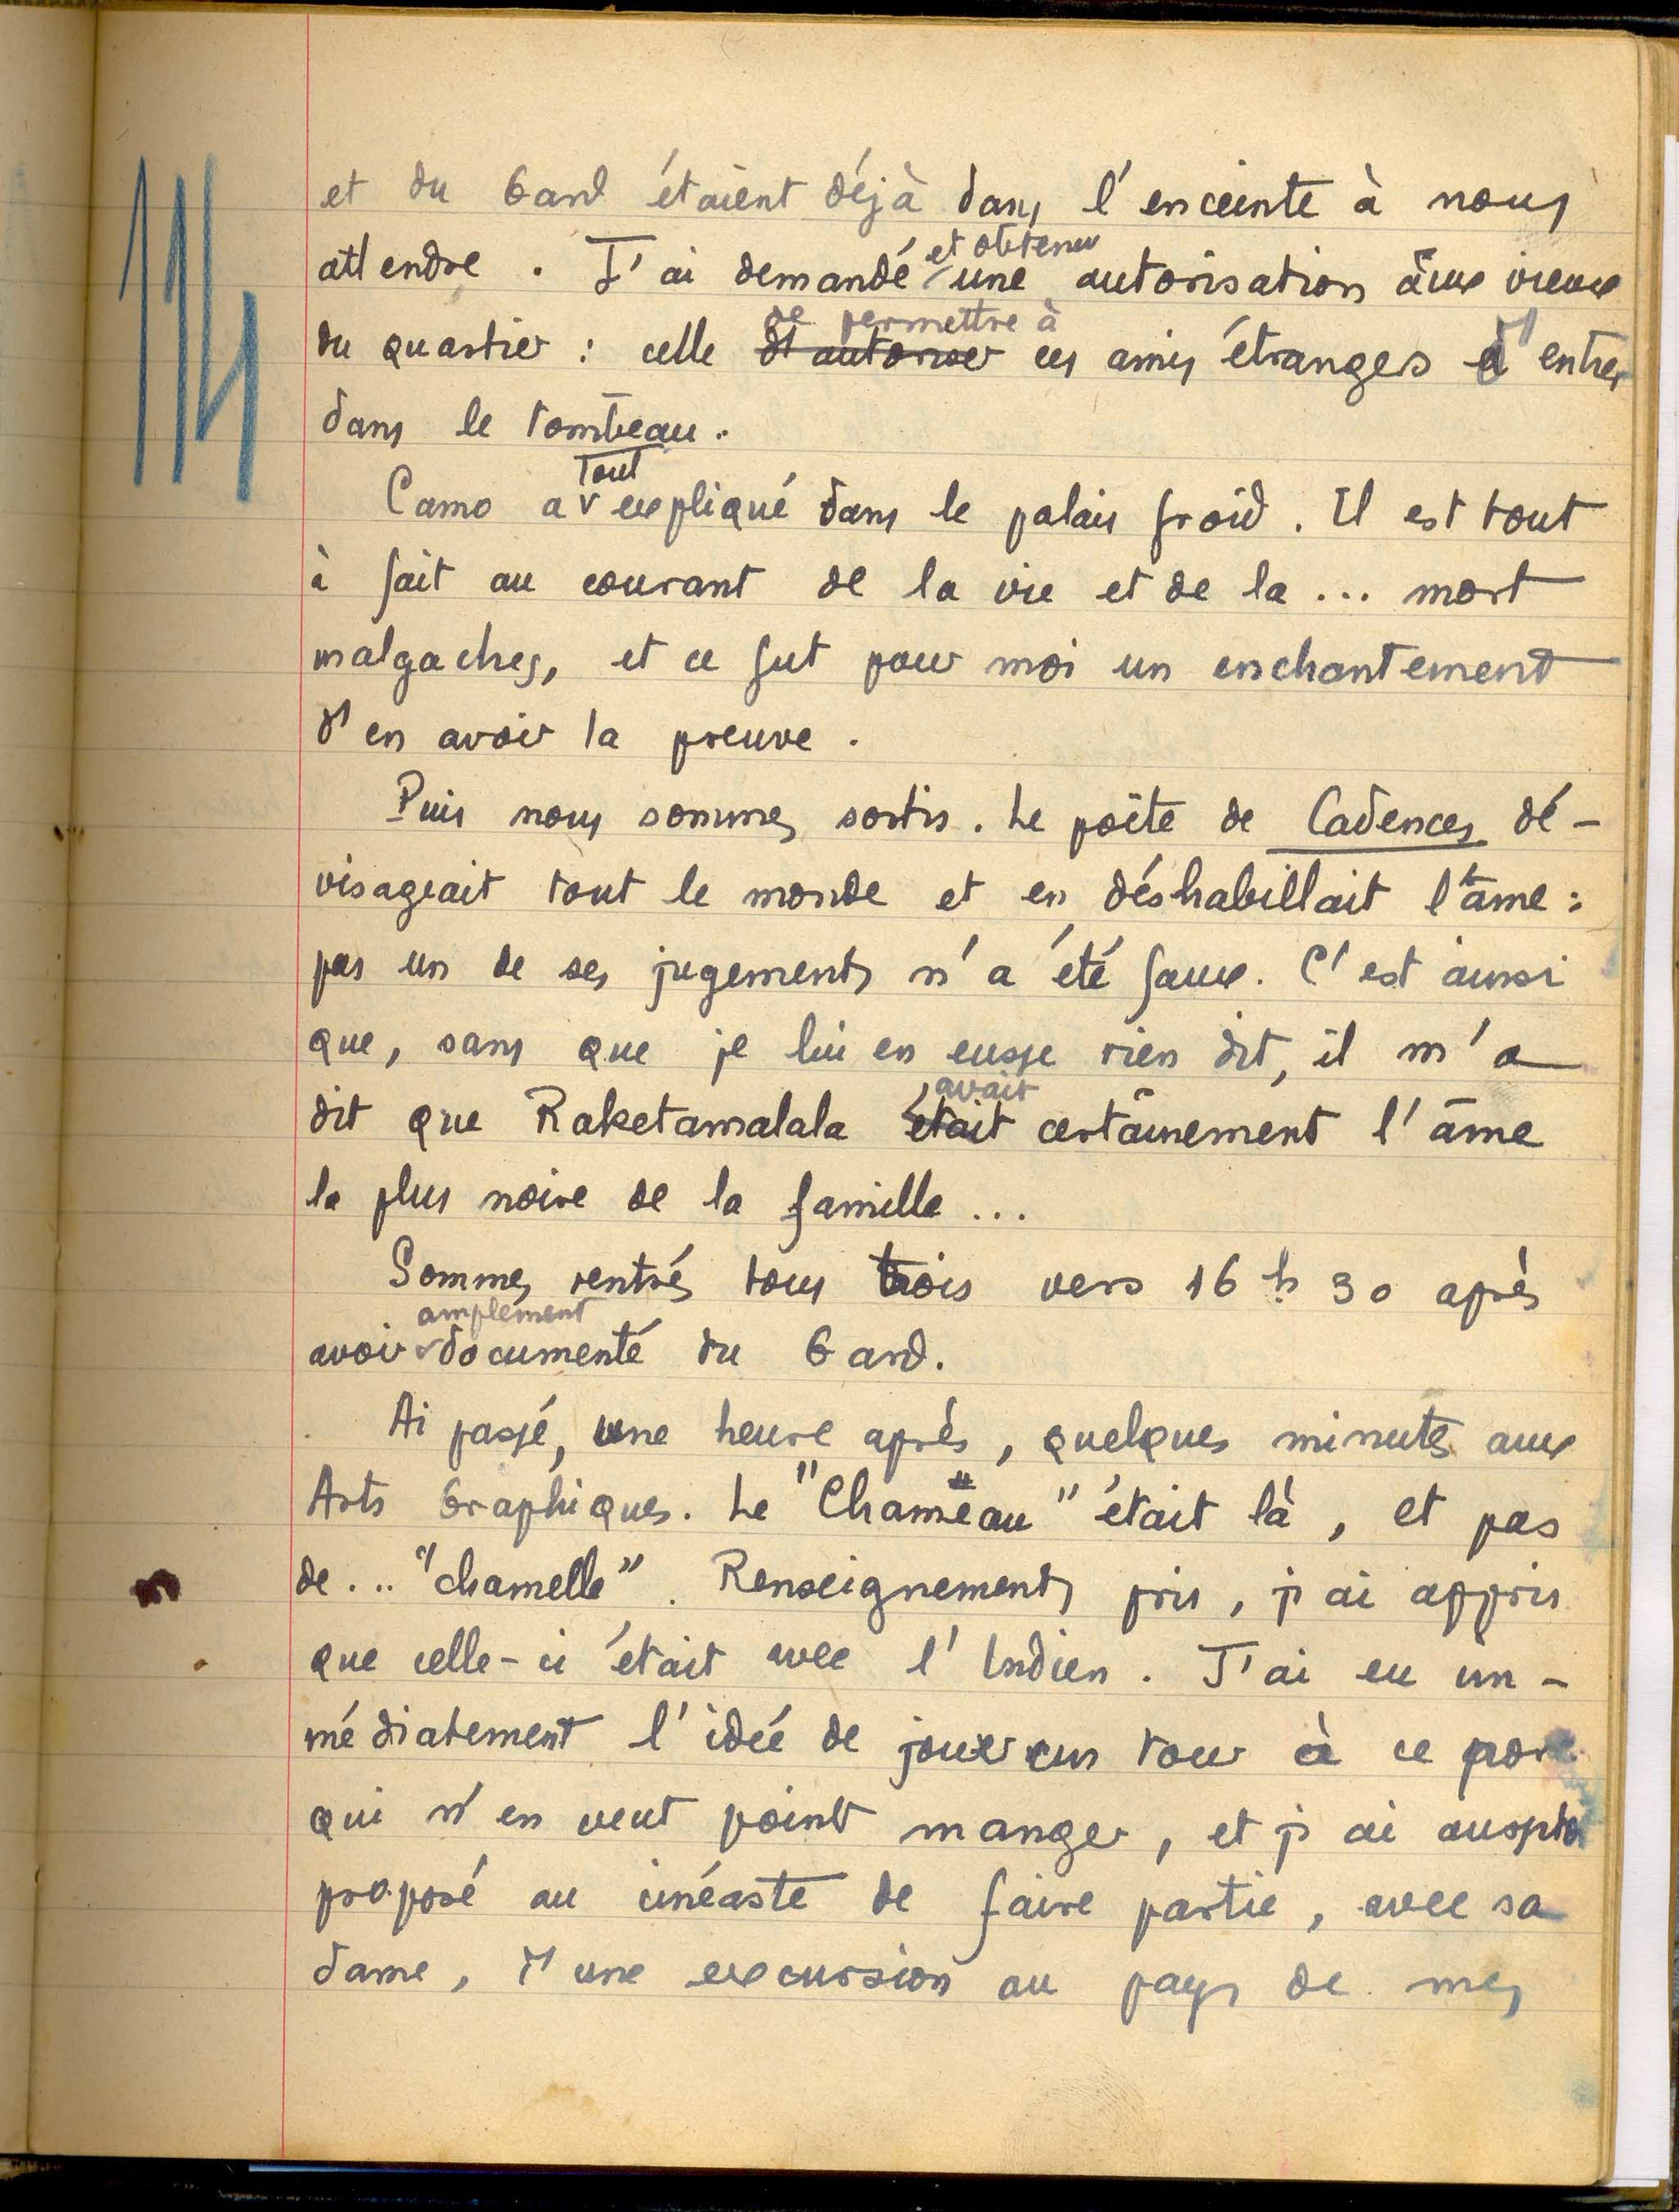 114
et du Gard étaient déjà dans l'enceinte à nous
attendre. J'ai demandé et obtenu une autorisation aux vieux
du quartier : celle d'autoriser de permettre à ces amis étrangers d'entrer
dans le tombeau.
Camo a tout expliqué dans le palais froid. Il est tout
à fait au courant de la vie et de la ... mort
malgaches, et ce fut pour moi un enchantement
d'en avoir la preuve.
Puis nous sommes sortis. Le poëte de Cadences dé-
visageait tout le monde et en déshabillait l'âme :
pas un de ses jugements n'a été faux. C'est ainsi
que, sans que je lui en eusse rien dit, il m'a
dit que Raketamalala était avait certainement l'âme
la plus noire de la famille ...
Sommes rentrés tous trois vers 16 h 30 après
avoir amplement documenté du Gard.
Ai passé, une heure après, quelques minutes aux
Arts Graphiques. Le "Chameau" était là, et pas
de ... "chamelle". Renseignements pris, j'ai appris
que celle-ci était avec l'Indien. J'ai eu im-
médiatement l'idée de jouer un tour à ce porc
qui n'en veut point manger, et j'ai aussitôt
proposé au cinéaste de faire partie, avec sa
dame, d'une excursion au pays de mes